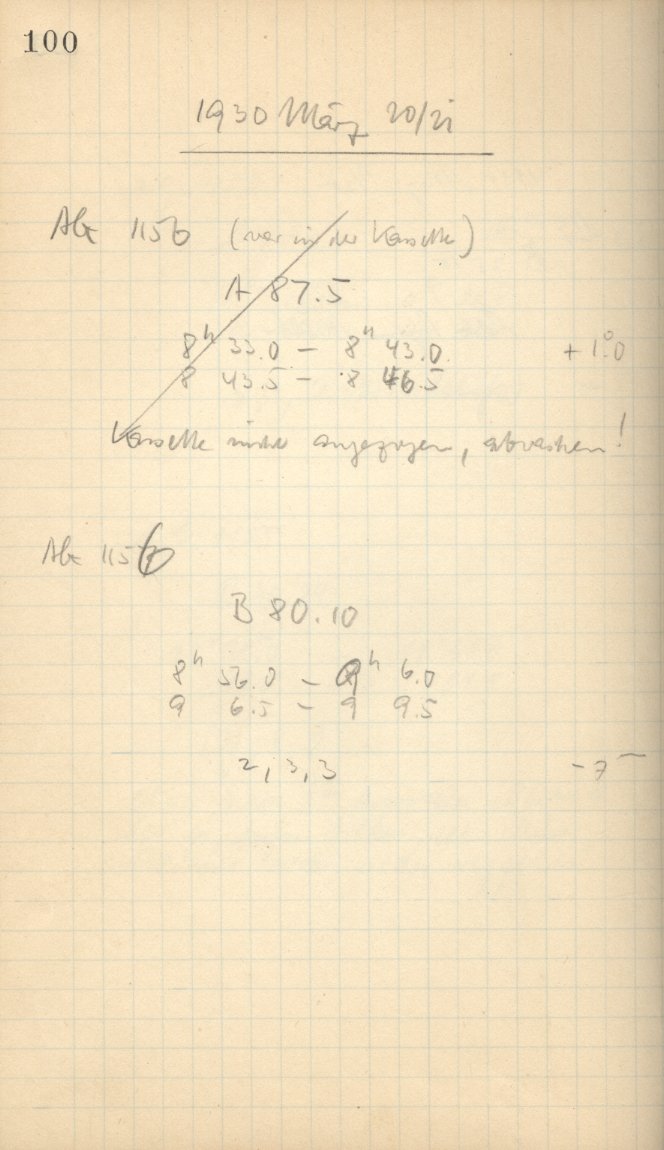 100
1930 März 20/21
AG 1156 (war in der Kassette)
A 87.5
8h 33.0 – 8h 43.0 +1°.0
8 43.5 – 8 46.5
Kassette nicht angezogen, abwaschen!
AG 1156
B 80.10
8h 56.0 – 9h 6.0
9 6.5 – 9 9.5
2, 3, 3 -7